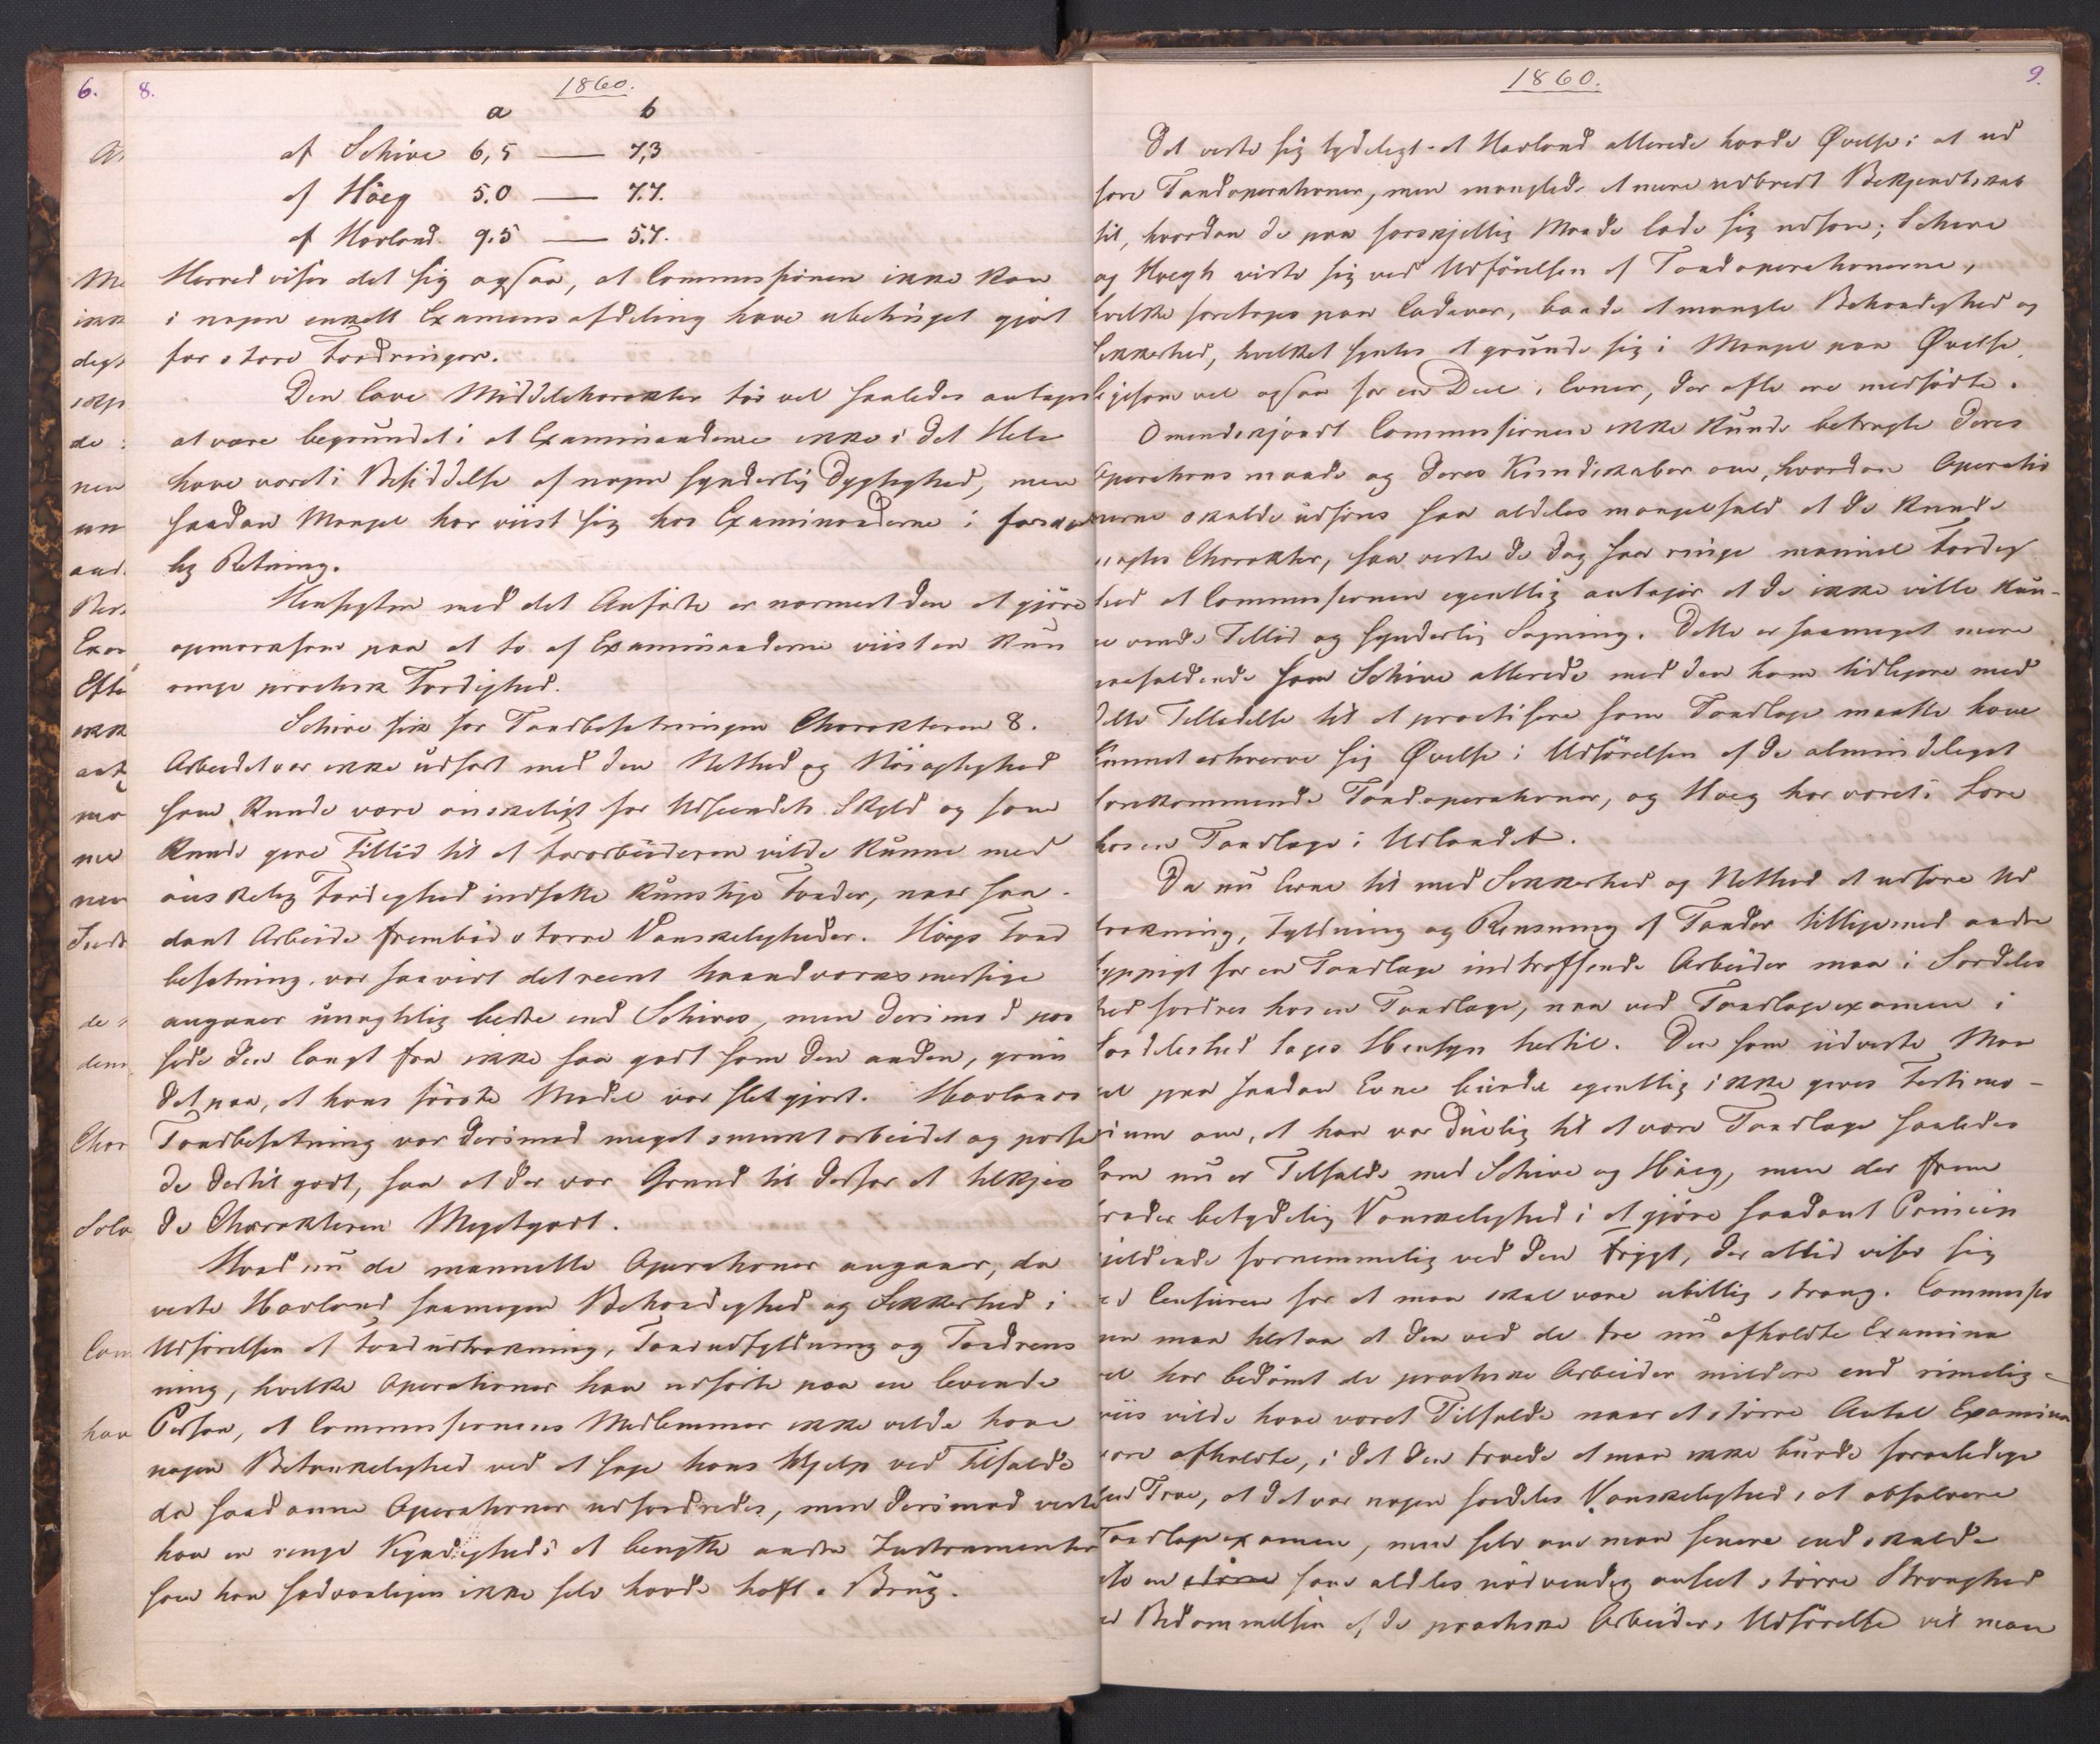 6.
8.
1860.
a b
af Schive 6,5 — 7,3
af Höeg 5.0 — 7.7.
af Havland 9.5 — 5.7.
Herved viser det sig ogsaa, at Commissionen ikke kan
i nogen enkelt Examensafdeling have ubetinget gjort
for store Fordringer.
Den lave Middelcharakter tör vel saaledes antages
at være begrundet i at Examinanderne ikke i det Hele
have været i Besiddelse af nogen synderlig Dygtighed, men
saadan Mangel har viist sig hos Examinanderne i forskjel
lig Retning.
Hensigten med det Anförte er nærmest den at gjöre
opmærksom paa at to af Examinanderne viiste en kun
ringe practisk Færdighed.
Schive fik for Tandbesætningen Charakteren 8.
Arbeidet var ikke udfört med den Nethed og Nöiagtighed
som kunde være önskeligt for Udseendets Skyld og som
kunde give Tillid til at Forarbeideren vilde kunne med
önskelig Færdighed indsætte kunstige Tænder, naar saa-
dant Arbeide fremböd större Vanskeligheder. Höegs Tand
besætning var saavidt det reent haandværksmessige
angaaer unægtelig bedre end Schives, men derimod pas
sede den langt fra ikke saa godt som den anden, grun
det paa, at hans förste Model var slet gjort. Havlands
Tandbesætning var derimod meget smukt arbeidet og passe
de dertil godt, saa at der var Grund til derfor at tilkjen
de Charakteren Megetgodt.
Hvad nu de manuelle Operationer angaaer, da
viste Havland saamegen Behændighed og Sikkerhed i
Udförelsen af Tandudtrækning, Tandudfyldning og Tandrens
ning, hvilke Operationer han udförte paa en levende
Person, at Commissionens Medlemmer ikke vilde have
nogen Betænkelighed ved at söge hans Hjelp ved Tilfælde
da saadanne Operationer udfordredes, men derimod viste
han en ringe Kyndighed i at benytte andre Instrumenter
som han sædvanligen ikke selv havde havt i Brug.
1860.
9.
Det viste sig tydeligt at Havland allerede havde Øvelse i at ud
före Tandoperationer, men manglede et mere udbredt Bekjendtskab
til, hvordan de paa forskjellig Maade lade sig udföre; Schive
og Hoegh viste sig ved Udförelsen af Tandoperationerne,
hvilke foretoges paa Cadaver, baade at mangle Behændighed og
Sikkerhed, hvilket syntes at grunde sig i Mangel paa Øvelse
ligesom vel ogsaa for en Deel i Evner, der ofte ere medfödte.
Omendskjöndt Commissionen ikke kunde betragte deres
Operationsmaade og deres Kundskaber om, hvordan Operatio
nerne skulde udföres saa aldeles mangelfuld at de kunde
nægtes Charakter, saa viste de dog saa ringe manuel Færdig
hed at Commissionen egentlig antager at de ikke ville kun-
ne vinde Tillid og synderlig Sögning. Dette er saameget mere
paafaldende som Schive allerede med den ham tidligere med
delte Tilladelse til at practisere som Tandlæge maatte have
kunnet erhverve sig Øvelse i Udförelsen af de almindeligst
forekommende Tandoperationer, og Höeg har været i Lære
hos en Tandlæge i Udlandet.
Da nu Evne til med Sikkerhed og Nethed at udföre Ud
trækning, Fyldning og Rensning af Tænder tilligemed andre
hyppigt for en Tandlæge indtræffende Arbeider maa i Særdeles
hed fordres hos en Tandlæge, maa ved Tandlægeexamen i
Særdeleshed tages Hensyn hertil. Den som udviste Man
gel paa saadan Evne burde egentlig ikke gives Testimo-
nium om, at han var duelig til at være Tandlæge saaledes
som nu er Tilfælde med Schive og Höeg, men der frem
træder betydelig Vanskelighed i at gjöre saadant Princip
gjeldende fornemmelig ved den Frygt, der altid viser sig
ved Censuren for at man skal være ubillig streng. Commissio
nen maa tilstaa at den ved de tre nu afholdte Examina
vel har bedömt de practiske Arbeider mildere end rimelig-
viis vilde have været Tilfælde naar et större Antal Examina
vare afholdte, i det den troede at man ikke burde foranledige
den Troe, at det var nogen særdeles Vanskelighed i at absolvere
Tandlægeexamen, men selv om man senere end skulde
en större som aldeles nödvendig anseet större Strenghed
ved Bedömmelsen af de practiske Arbeiders Udförelse vil man